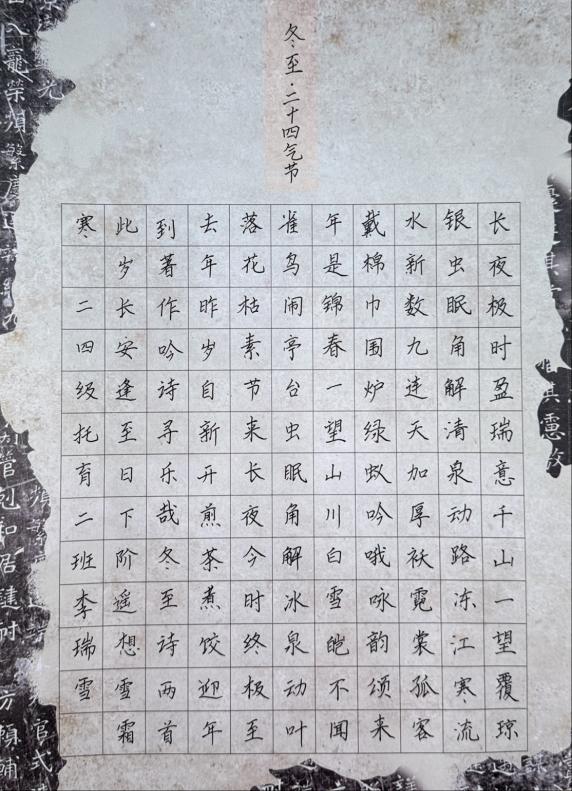 冬至·二十四气节
长夜极时盈瑞意千山一望覆琼
银虫眠角解清泉动路冻江寒流
水新数九连天加厚袄霓裳孤客
戴棉巾围炉绿蚁吟哦咏韵颂来
年是锦春一望山川白雪皑不闻
雀鸟闹亭台虫眠角解冰泉动叶
落花枯素节来长夜今时终极至
去年昨岁自新开煎茶煮饺迎年
到著作吟诗寻乐哉冬至诗两首
此岁长安逢至日下阶遥想雪霜
寒 二四级托育二班李瑞雪